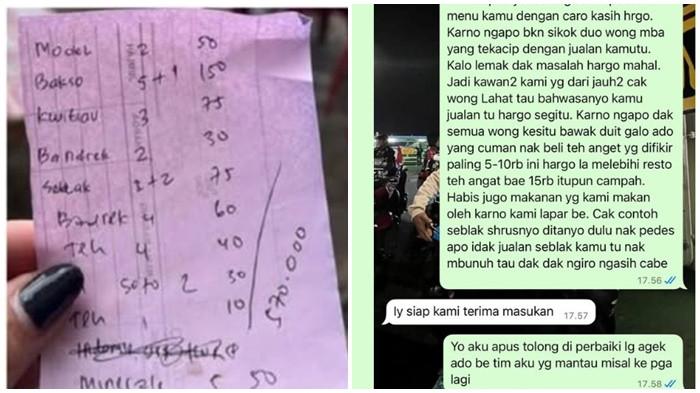 Model 2 50
Bakso 5+1 150
kwitiau 3 75
Bandrek 2 30
Seblak 3+2 75
Bandrek 4 60
Teh 4 40
Soto 2 30
Teh 1 10
570.000
Minerale 5 50
menu kamu dengan caro kasih hrgo.
Karno ngapo bkn sikok duo wong mba
yang tekacip dengan jualan kamutu.
Kalo lemak dak masalah hargo mahal.
Jadi kawan2 kami yg dari jauh2 cak
wong Lahat tau bahwasanyo kamu
jualan tu hargo segitu. Karno ngapo dak
semua wong kesitu bawak duit galo ado
yang cuman nak beli teh anget yg difikir
paling 5-10rb ini hargo la melebihi resto
teh angat bae 15rb itupun campah.
Habis jugo makanan yg kami makan
oleh karno kami lapar be. Cak contoh
seblak shrusnyo ditanyo dulu nak pedes
apo idak jualan seblak kamu tu nak
mbunuh tau dak dak ngiro ngasih cabe
17.56
Iy siap kami terima masukan 17.57
Yo aku apus tolong di perbaiki lg agek
ado be tim aku yg mantau misal ke pga
lagi
17.58